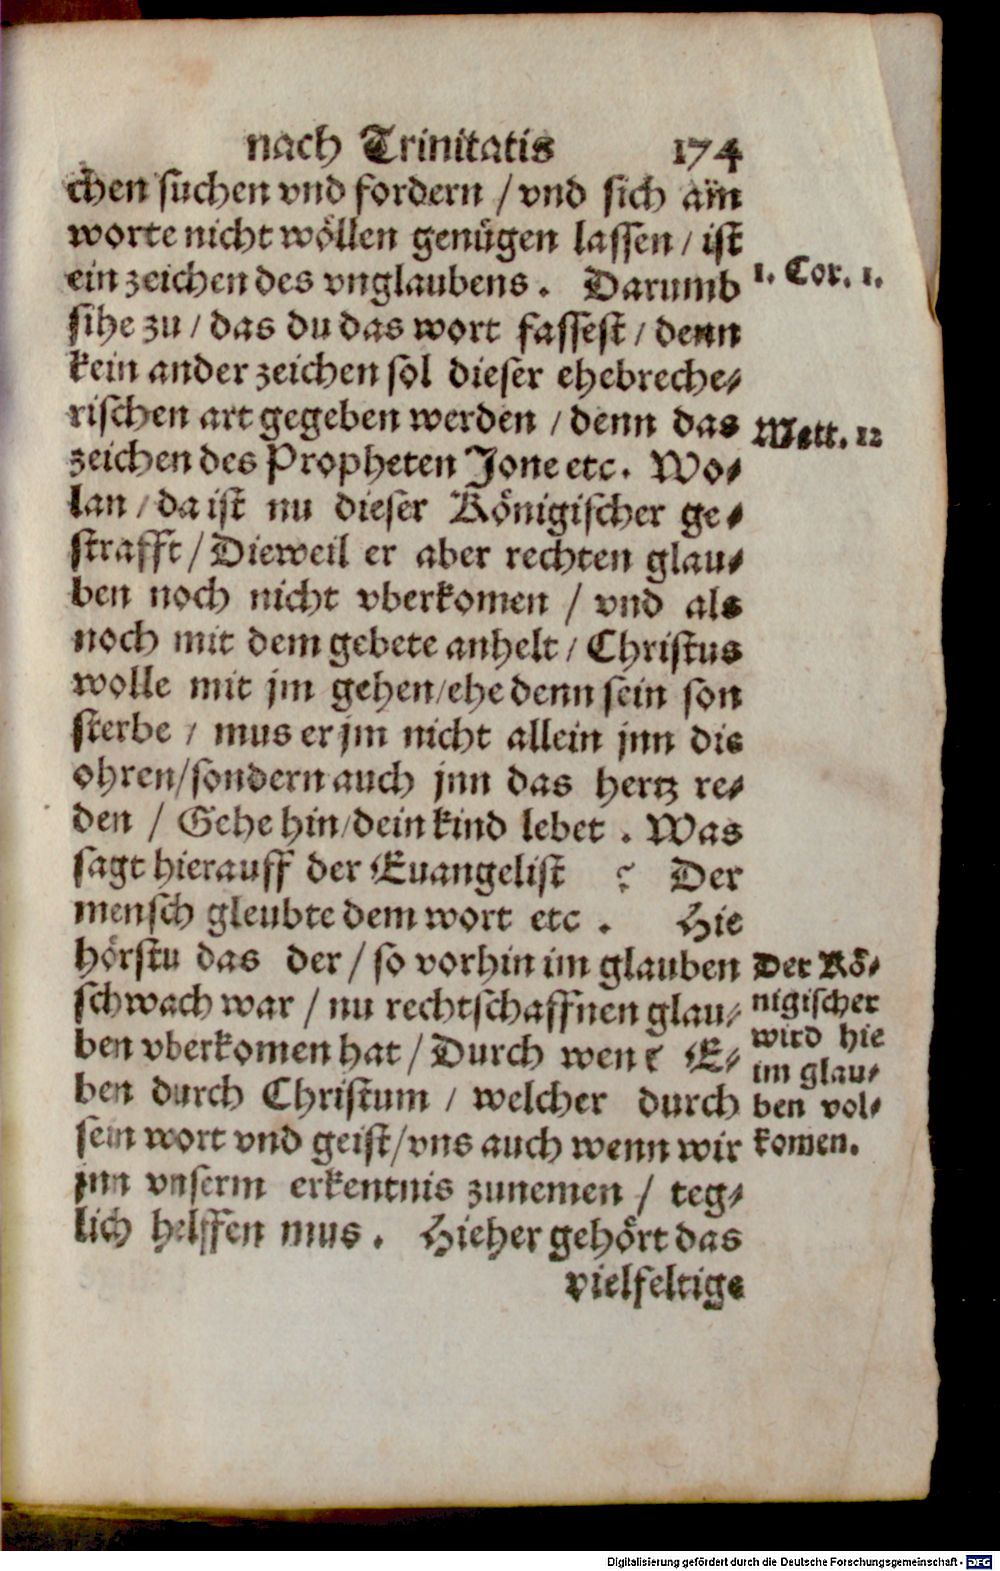 nach Trinitatis 174
chen suchen vnd fordern / vnd sich am
worte nicht wöllen genügen lassen / ist
ein zeichen des vnglaubens. Darumb
1. Cor. 1.
sihe zu / das du das wort fassest / denn
kein ander zeichen sol dieser ehebreche-
rischen art gegeben werden / denn das
Matt. 12
zeichen des Propheten Jone etc. Wo-
lan / da ist nu dieser Königischer ge-
strafft / Dieweil er aber rechten glau-
ben noch nicht vberkomen / vnd als
noch mit dem gebete anhelt / Christus
wolle mit jm gehen / ehe denn sein son
sterbe / mus er jm nicht allein jnn die
ohren / sondern auch jnn das hertz re-
den / Gehe hin / dein kind lebet. Was
sagt hierauff der Euangelist ? Der
mensch gleubte dem wort etc. Hie
hörstu das der / so vorhin im glauben
schwach war / nu rechtschaffnen glau-
ben vberkomen hat / Durch wen? E-
ben durch Christum / welcher durch
sein wort vnd geist / vns auch wenn wir
jnn vnserm erkentnis zunemen / teg-
lich helffen mus. Hieher gehört das
vielfeltige
Der Kö-
nigischer
wird hie
im glau-
ben vol-
komen.
Digitalisierung gefördert durch die Deutsche Forschungsgemeinschaft - DFG